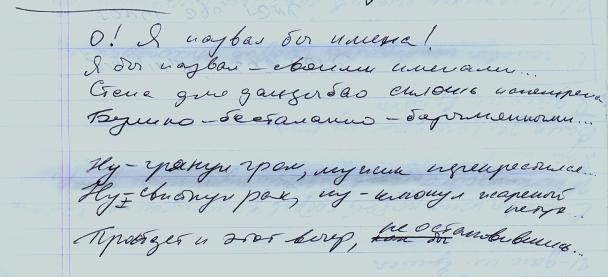 О! Я назвал бы имена!
Я бы назвал – своими именами...
Стена для дацзыбао сплошь испещрена
Бездарно – бесталанно –
Ну – грянул гром, мужик перекрестился...
Ну – свистнул рак, ну – клюнул жареный
петух...
Пройдет и этот вечер, как бы не остановившись...